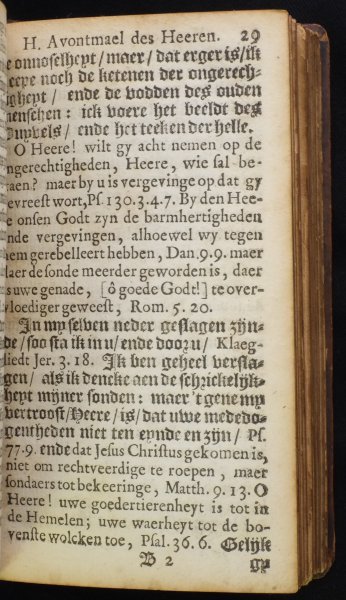 H. Avontmael des Heeren. 29
e onnoselheyt / maer / dat erger is / ik
eepe noch de ketenen der ongerech-
igheyt / ende de vodden des ouden
menschen : ick voere het beeldt des
Duyvels / ende het teeken der helle.
O Heere! wilt gy acht nemen op de
ngerechtigheden, Heere, wie sal be-
taen? maer by u is vergevinge op dat gy
evreest wort, Ps. 130.3.4.7. By den Hee-
e onsen Godt zyn de barmhertigheden
nde vergevingen, alhoewel wy tegen
hem gerebelleert hebben, Dan. 9.9. maer
daer de sonde meerder geworden is, daer
s uwe genade, [ô goede Godt!] te over-
vloediger geweest, Rom. 5. 20.
In my selven neder geslagen zijn-
de / soo sta ik in u / ende door u / Klaeg-
liedt Jer. 3. 18. Ik ben geheel versla-
gen / als ik dencke aen de schrickelijk-
heyt mijner sonden : maer 't gene my
vertroost / Heere / is / dat uwe mededo-
gentheden niet ten eynde en zijn / Ps.
77.9. ende dat Jesus Christus gekomen is,
niet om rechtveerdige te roepen, maer
sondaers tot bekeeringe, Matth. 9. 13. O
Heere! uwe goedertierenheyt is tot in
de Hemelen; uwe waerheyt tot de bo-
venste wolcken toe, Psal. 36. 6. Gelijk
B 2 gy